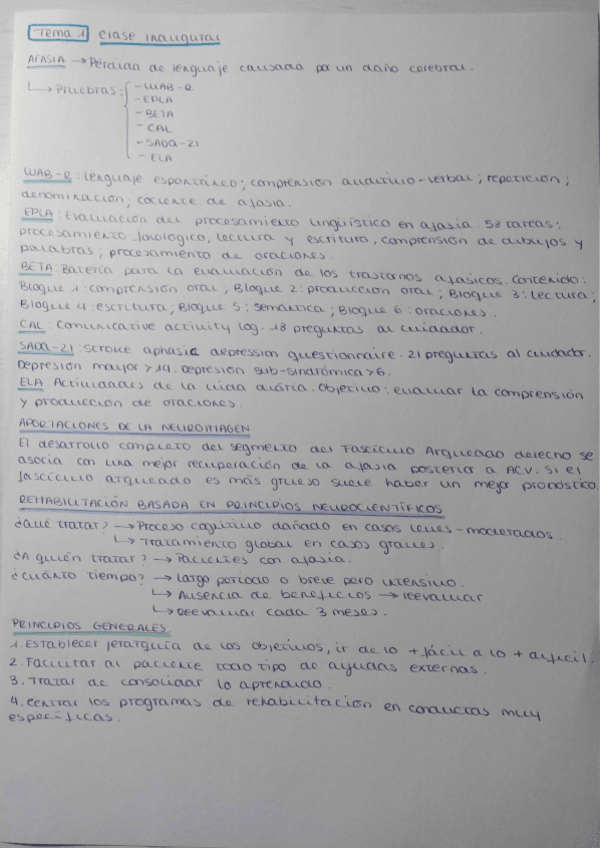 Tema 1 clase inaugural
AFASIA → Pérdida de lenguaje causada por un daño cerebral.
↳ Pruebras: - WAB-R
- EPLA
- BETA
- CAL
- SADQ-21
- ELA
WAB-R: lenguaje espontáneo; comprensión auditivo-verbal; repetición;
denominación; cociente de afasia.
EPLA: Evaluación del procesamiento lingüístico en afasia. 58 tareas:
procesamiento fonológico, lectura y escritura, comprensión de dibujos y
palabras, procesamiento de oraciones.
BETA: Batería para la evaluación de los trastornos afásicos. Contenido:
Bloque 1: comprensión oral; Bloque 2: producción oral; Bloque 3: lectura;
Bloque 4: escritura; Bloque 5: semántica; Bloque 6: oraciones.
CAL: Comunicative activity log. 18 preguntas al cuidador.
SADQ-21: Stroke aphasic depression questionnaire. 21 preguntas al cuidador.
Depresión mayor > 14. Depresión sub-sindrómica > 6.
ELA: Actividades de la vida diaria. Objetivo: evaluar la comprensión
y producción de oraciones.
APORTACIONES DE LA NEUROIMAGEN
El desarrollo completo del segmento del Fascículo Arqueado derecho se
asocia con una mejor recuperación de la afasia posterior a ACV. Si el
fascículo arqueado es más grueso suele haber un mejor pronóstico.
REHABILITACIÓN BASADA EN PRINCIPIOS NEUROCIENTÍFICOS
¿Qué tratar? → Proceso cognitivo dañado en casos leves-moderados.
↳ Tratamiento global en casos graves.
¿A quién tratar? → Pacientes con afasia.
¿Cuánto tiempo? → Largo período o breve pero intensivo.
↳ Ausencia de beneficios → reevaluar
↳ Reevaluar cada 3 meses.
PRINCIPIOS GENERALES
1. Establecer jerarquía de los objetivos, ir de lo + fácil a lo + difícil.
2. Facilitar al paciente todo tipo de ayudas externas.
3. Tratar de consolidar lo aprendido.
4. Centrar los programas de rehabilitación en conductas muy
específicas.